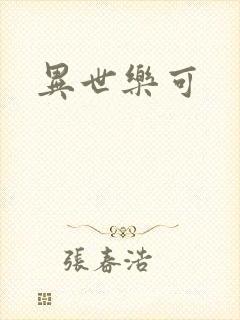 異世樂可
張春浩